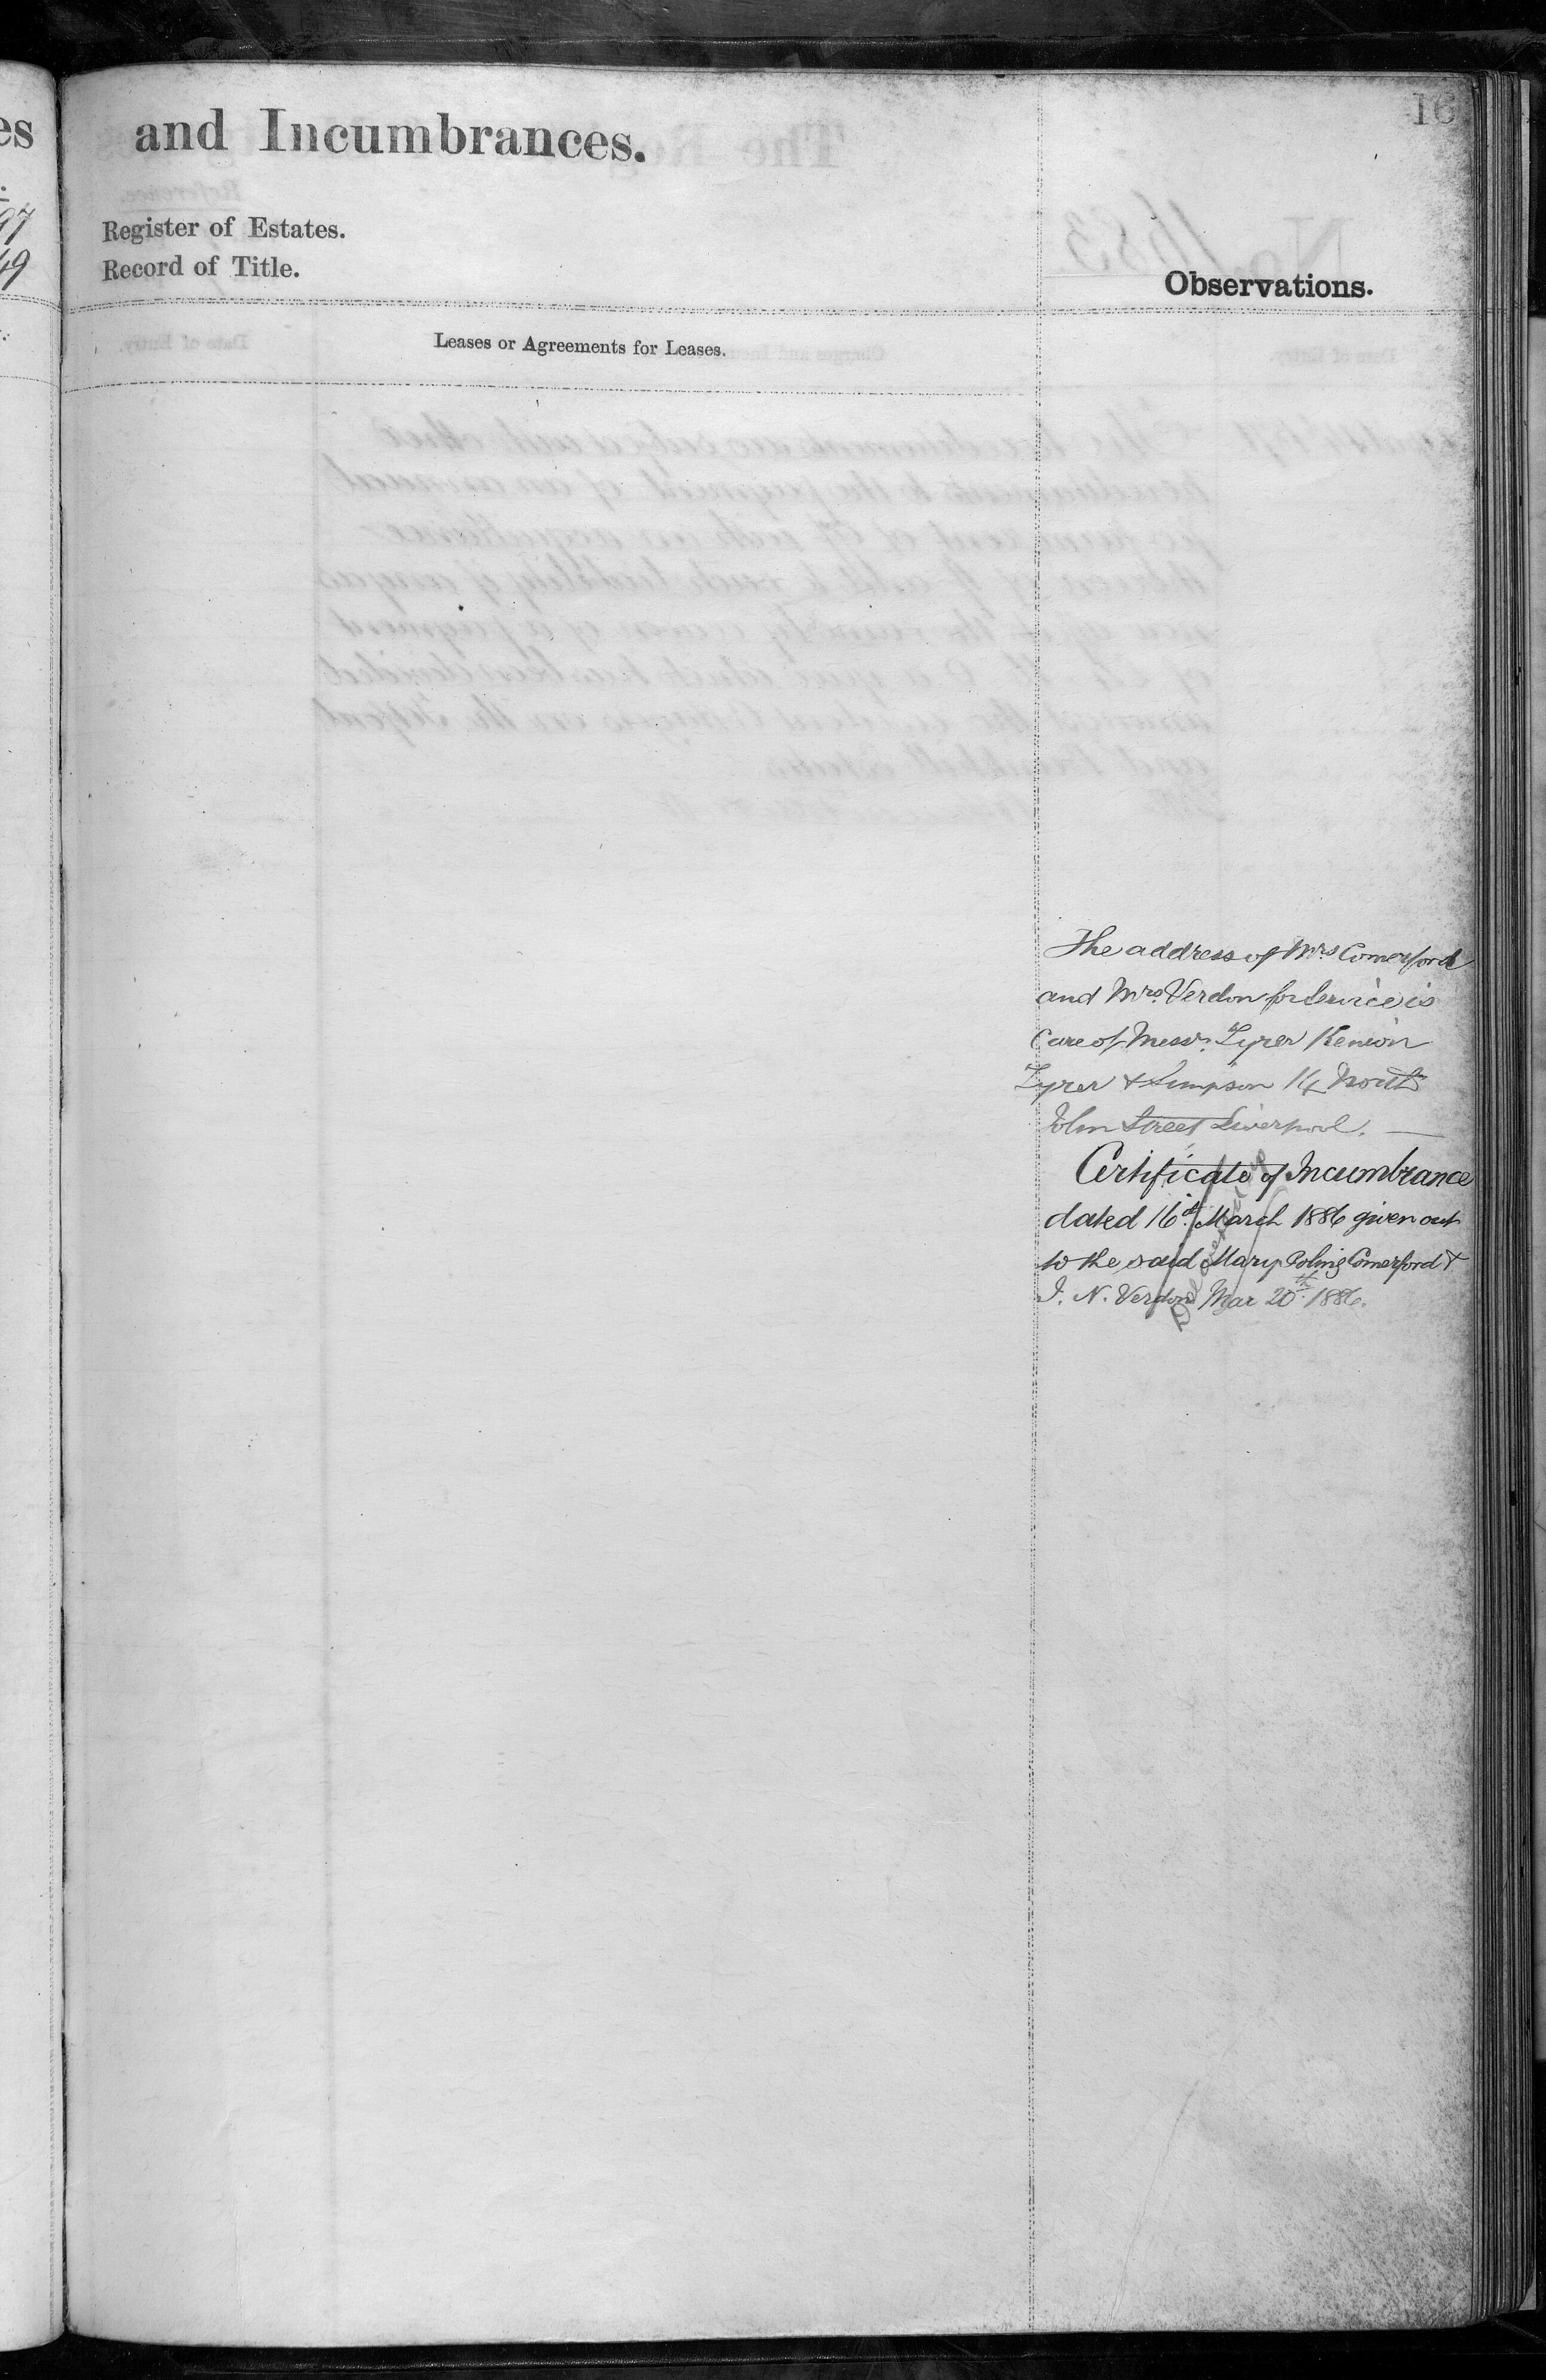 16
es
and Incumbrances.
97
49
Register of Estates.
Record of Title.
Observations.
Leases or Agreements for Leases.
The address of Mrs Comerford
and Mrs. Verdon for Service is
Care of Messrs. Tyrer Kenion
Tyrer & Simpson 14 North
John Street Liverpool.
Certificate of Incumbrance
dated 16th March 1886 given out
to the said Mary Comerford &
I. N. Verdon Mar 20th 1886.